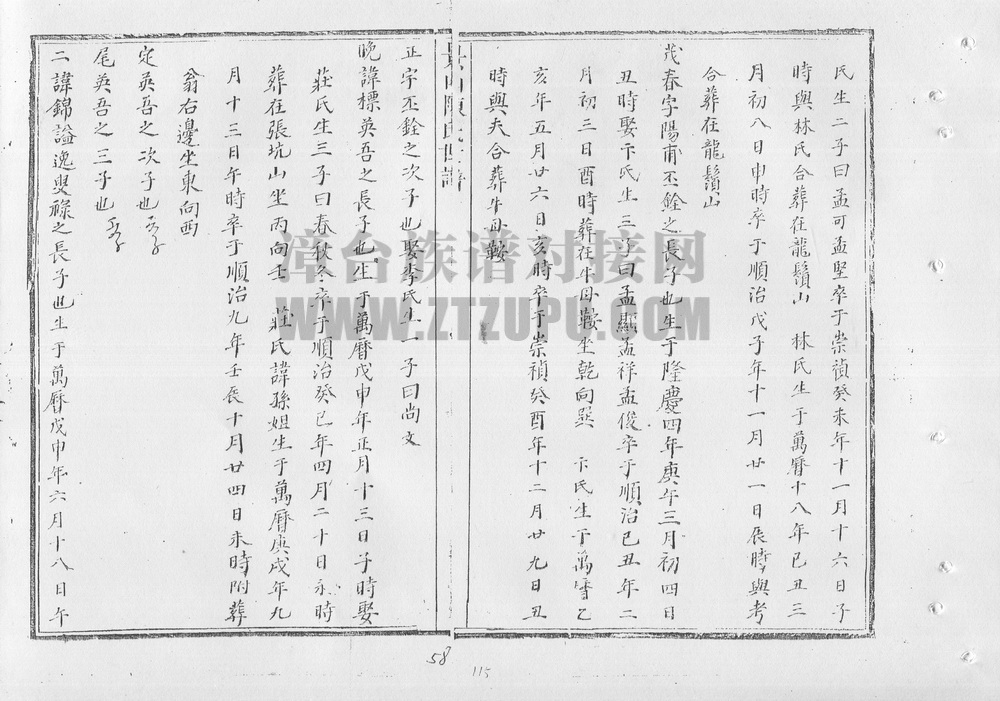 氏生二子曰孟可孟堅卒于崇禎癸未年十一月十六日子
時與林氏合葬在龍鬚山　林氏生于萬曆十八年己丑三
月初八日申時卒于順治戊子年十一月廿一日辰時與考
合葬在龍鬚山
茂春字陽甫丕銓之長子也生于隆慶四年庚午三月初四日
丑時娶卞氏生三子曰孟顯孟祥孟俊卒于順治己丑年二
月初三日酉時葬在牛毋鞍坐乾向巽　卞氏生于萬曆乙
亥年五月廿六日亥時卒于崇禎癸酉年十二月廿九日丑
時與夫合葬牛毋鞍
陳氏世譜
正字丕銓之次子也娶李氏生一子曰尚文
晚諱標英吾之長子也生于萬曆戊申年正月十三日子時娶
莊氏生三子曰春秋冬卒于順治癸巳年四月二十日未時
葬在張坑山坐丙向壬　莊氏諱孫姐生于萬曆庚戌年九
月十三日午時卒于順治九年壬辰十月廿四日未時附葬
翁右邊坐東向西
定英吾之次子也
尾英吾之三子也
二諱錦謚逸叟祿之長子也生于萬曆戊申年六月十八日午
58
115
漳台族谱对接网
WWW.ZTZUPU.COM